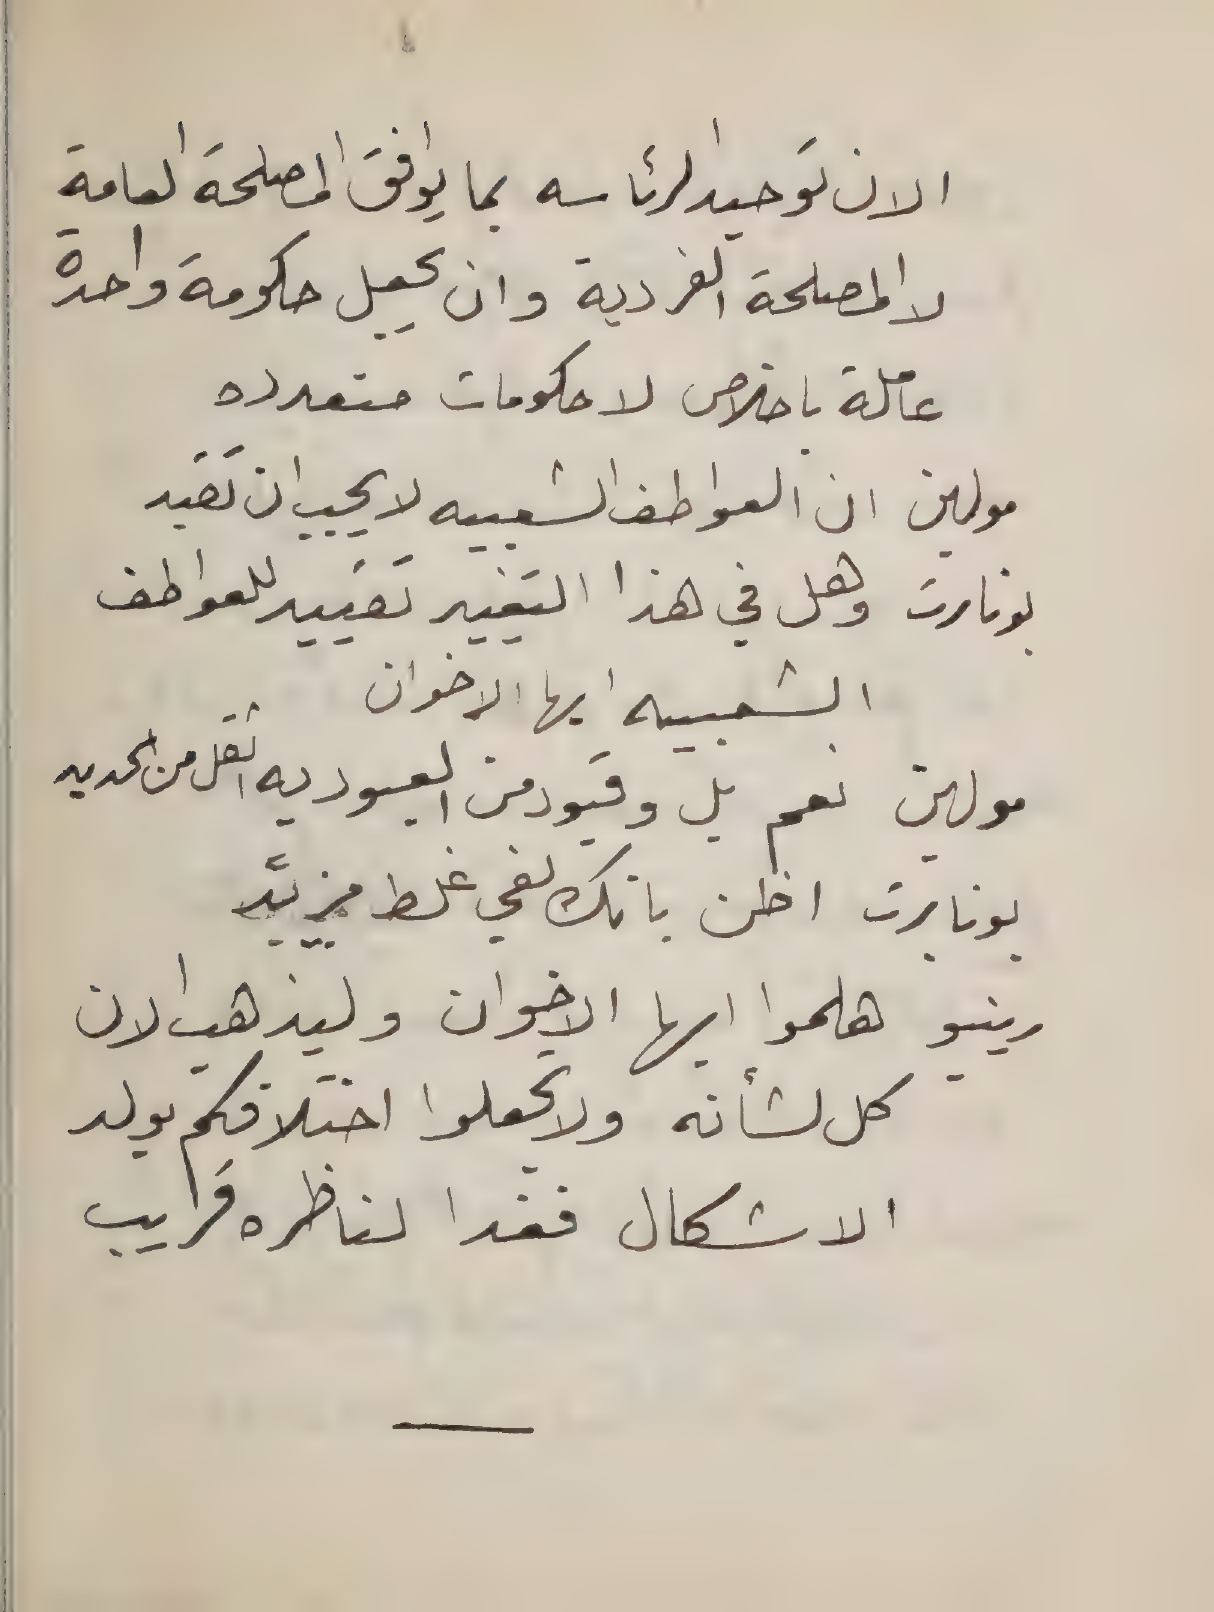 الان توحيد الرئاسه بما يوافق المصلحة العامة
لا المصلحة الفردية وان يجعل حكومة واحدة
عاملة باخلاص لا حكومات متعدده
مولين ان العواطف الشعبيه لا يجب ان تقيد
بونابرت وهل في هذا التغيير تقييد للعواطف
الشعبيه ايها الاخوان
مولين نعم بل وقيود من العبوديه اثقل من الحديد
بونابرت اظن بانك لفي غلط
رينيو هلموا ايها الاخوان وليذهب الان
كل لشأنه ولا تجعلوا اختلافكم يولد
الاشكال فغدا لناظره قريب